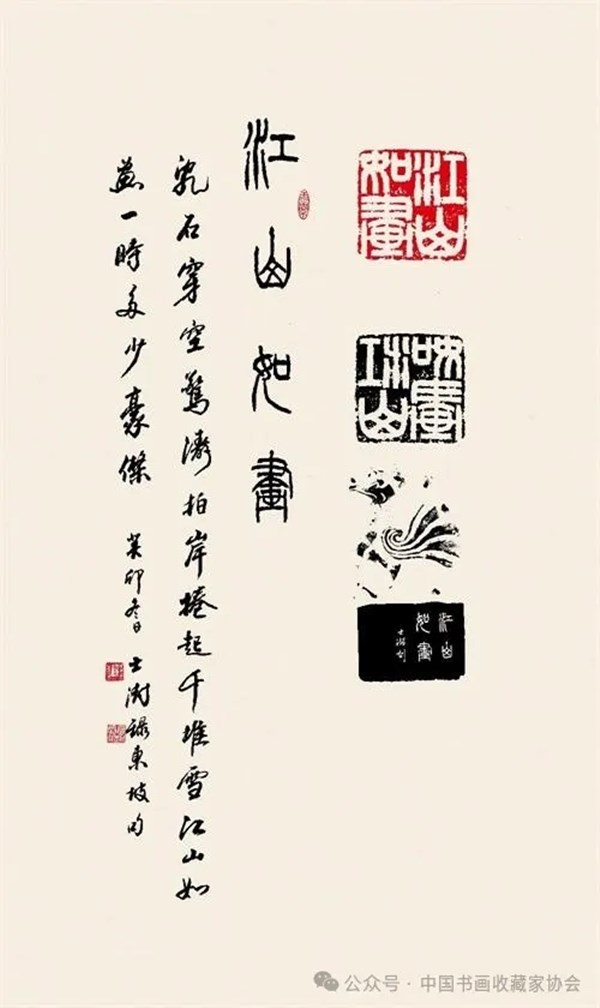 江山
如畫
江山
如畫
江山
如畫
士澍刻
江山如畫
亂石穿空驚濤拍岸捲起千堆雪江山如
畫一時多少豪傑 癸卯冬日 士澍録東坡句
公众号 · 中国书画收藏家协会